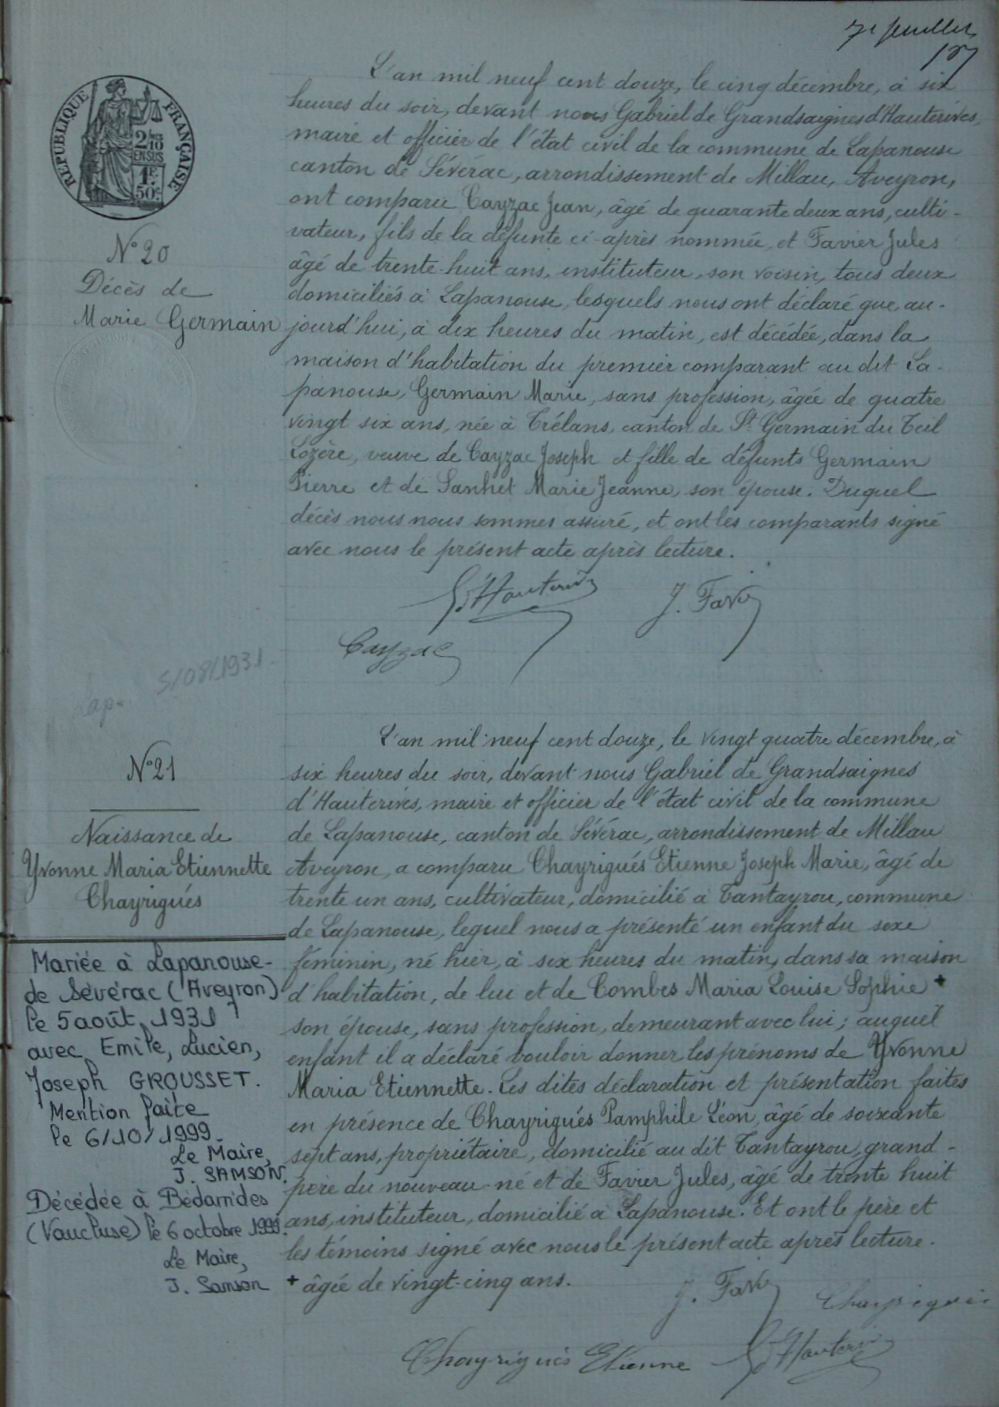 7e feuillet
RÉPUBLIQUE FRANÇAISE
2/10
EN SUS
1F.
50c.
L'an mil neuf cent douze, le cinq décembre, à six
heures du soir, devant nous Gabriel de Grandsaignes d'Hauterives,
maire et officier de l'état civil de la commune de Lapanouse
canton de Sévérac, arrondissement de Millau, Aveyron,
ont comparu Cayzac Jean, âgé de quarante deux ans, culti-
vateur, fils de la défunte ci-après nommée, et Favier Jules
âgé de trente-huit ans, instituteur, son voisin, tous deux
domiciliés à Lapanouse, lesquels nous ont déclaré que au-
jourd'hui, à dix heures du matin, est décédée, dans la
maison d'habitation du premier comparant au dit La-
panouse, Germain Marie, sans profession, âgée de quatre
vingt six ans, née à Trélans, canton de St Germain du Teil
Lozère, veuve de Cayzac Joseph et fille de défunts Germain
Pierre et de Sanhet Marie Jeanne, son épouse. Duquel
décès nous nous sommes assuré, et ont les comparants signé
avec nous le présent acte après lecture.
N° 20
Décès de
Marie Germain
G. d'Hauterives
J. Favier
Cayzac
5/08/1931
L'an mil neuf cent douze, le vingt quatre décembre, à
six heures du soir, devant nous Gabriel de Grandsaignes
d'Hauterives, maire et officier de l'état civil de la commune
de Lapanouse, canton de Sévérac, arrondissement de Millau
Aveyron, a comparu Chayrigués Etienne Joseph Marie, âgé de
trente un ans, cultivateur, domicilié à Tantayrou, commune
de Lapanouse, lequel nous a présenté un enfant du sexe
féminin, né hier, à six heures du matin, dans sa maison
d'habitation, de lui et de Combes Maria Louise Sophie +
son épouse, sans profession, demeurant avec lui; auquel
enfant il a déclaré vouloir donner les prénoms de Yvonne
Maria Etiennette. Les dites déclaration et présentation faites
en présence de Chayrigués Pamphile Léon, âgé de soixante
sept ans, propriétaire, domicilié au dit Tantayrou, grand-
père du nouveau-né et de Favier Jules, âgé de trente huit
ans, instituteur, domicilié à Lapanouse. Et ont le père et
les témoins signé avec nous le présent acte après lecture.
+ âgée de vingt-cinq ans.
N° 21
Naissance de
Yvonne Maria Etiennette
Chayrigués
Mariée à Lapanouse-
de Sévérac (Aveyron)
le 5 août 1931
avec Emile, Lucien,
Joseph GROUSSET.
Mention faite
le 6/10/1999
Le Maire,
J. SAMSON.
Décédée à Bédarrides
(Vaucluse) le 6 octobre 1999.
Le Maire,
J. Samson
J. Favier
Chayrigués
Chayrigués Etienne
G. d'Hauterives